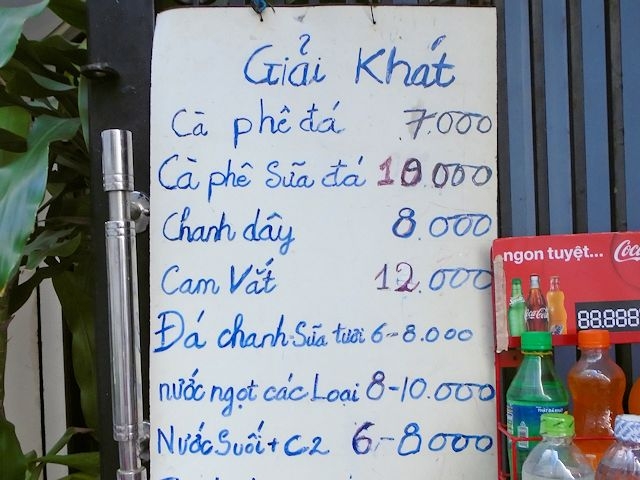 Giải Khát
Cà phê đá 7.000
Cà phê Sữa đá 10.000
Chanh dây 8.000
Cam Vắt 12.000
Đá chanh-Sữa tươi 6-8.000
nước ngọt các Loại 8-10.000
Nước Suối + C2 6-8000
ngon tuyệt...
Coca
88.888